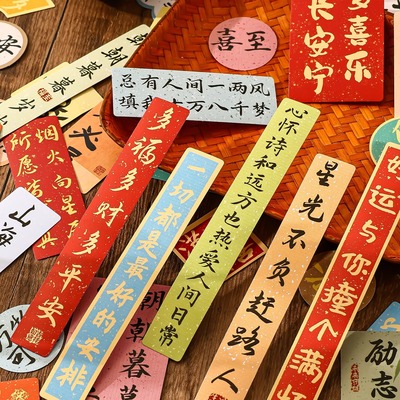 喜至
多喜乐
长安宁
总有人间一两风
填我十万八千梦
朝朝
暮暮
烟火向星辰
所愿皆
山海
多福多财多平安
一切都是最好的安排
心怀诗和远方也热爱人间日常
星光不负赶路人
好运与你撞个满怀
朝朝
暮暮
励志